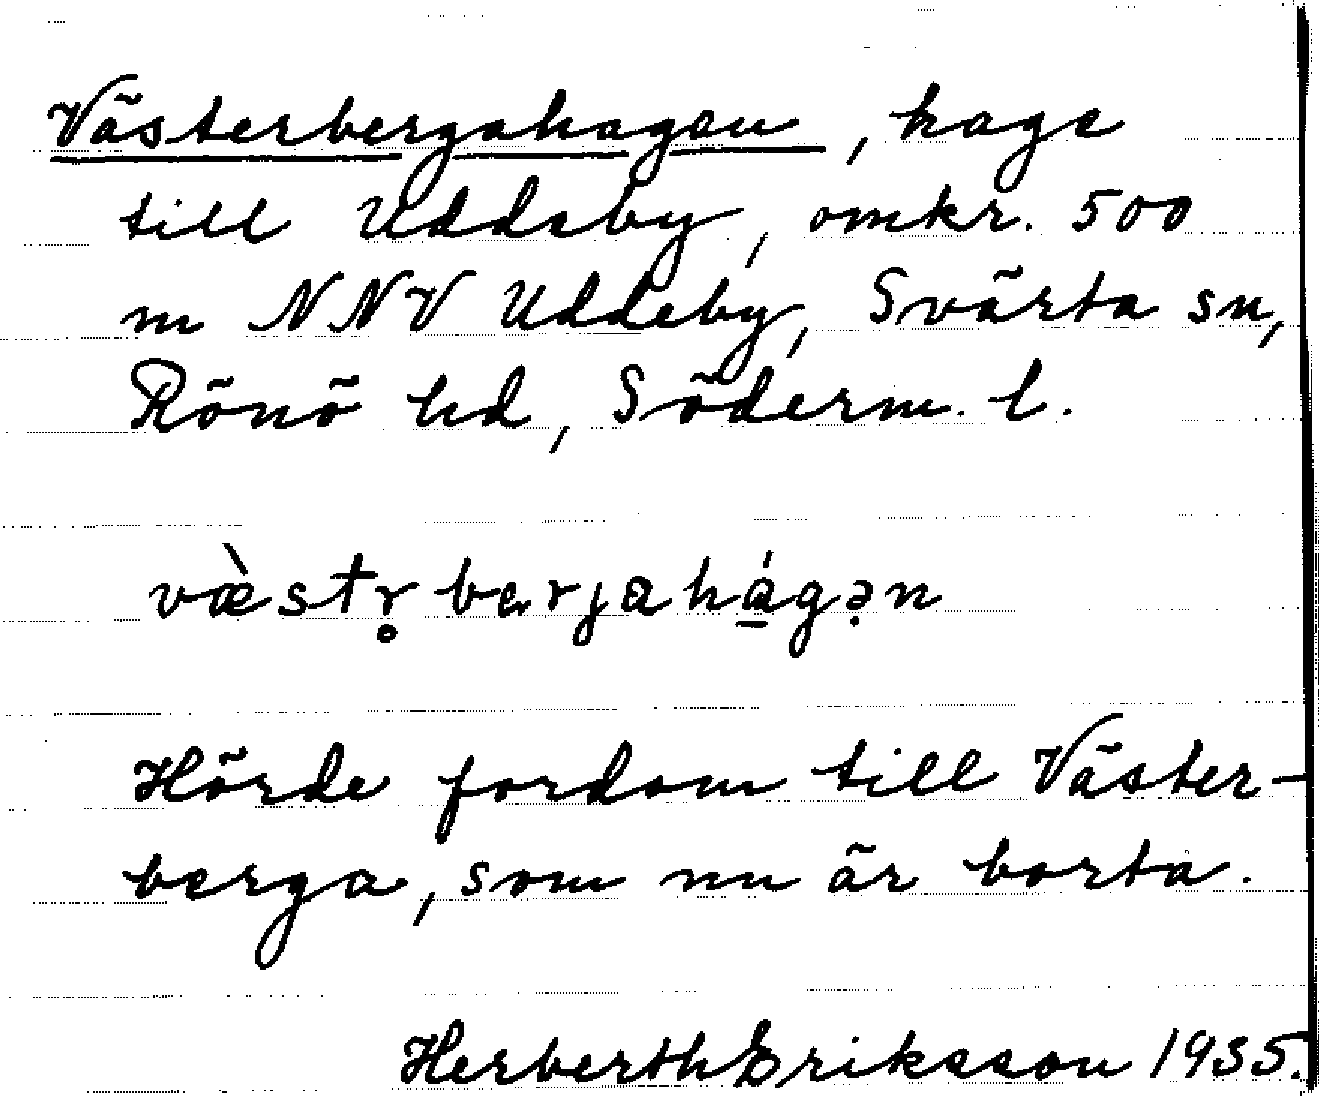 Västerbergahagen, hage
till Uddeby, omkr. 500
m NNV Uddeby, Svärta sn,
Rönö hd, Söderm. l.
væ̀str̥ bærjahá̱gə̣n
Hörde fordom till Väster-
berga, som nu är borta.
Herberth Eriksson 1935.